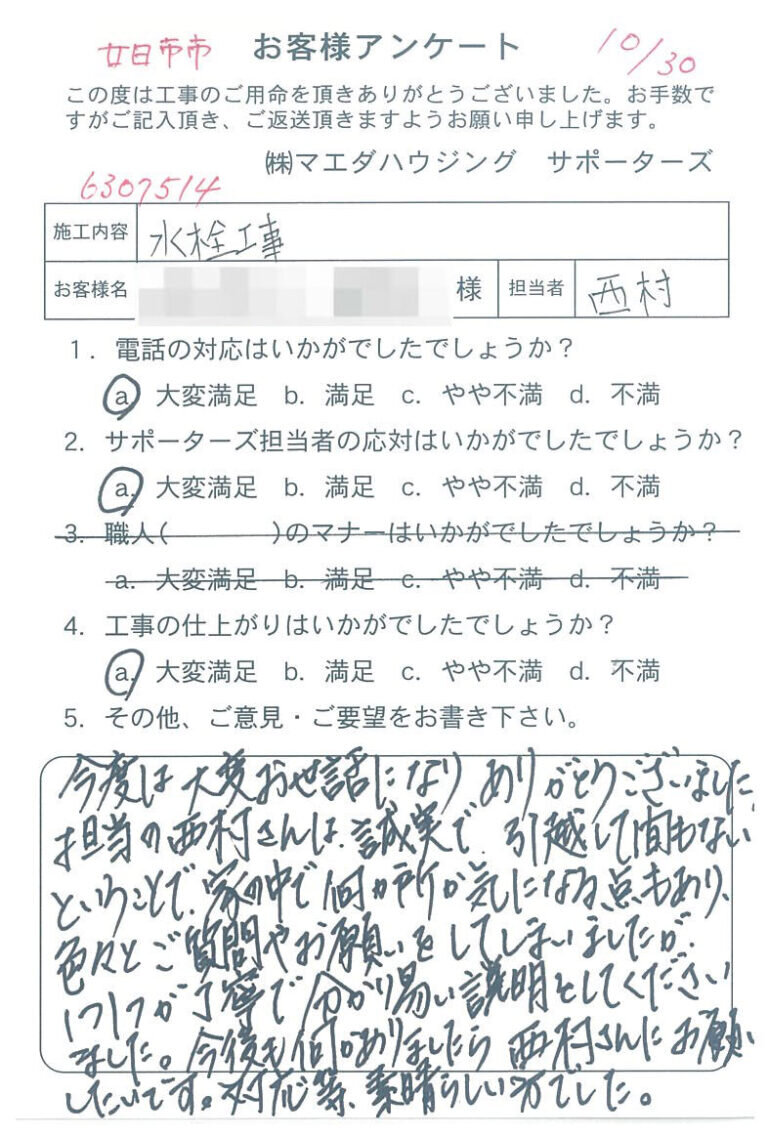 廿日市市 お客様アンケート 10/30
この度は工事のご用命を頂きありがとうございました。お手数で
すがご記入頂き、ご返送頂きますようお願い申し上げます。
㈱マエダハウジング サポーターズ
6307514
施工内容 水栓工事
お客様名 様 担当者 西村
1. 電話の対応はいかがでしたでしょうか？
a. 大変満足 b. 満足 c. やや不満 d. 不満
2. サポーターズ担当者の応対はいかがでしたでしょうか？
a. 大変満足 b. 満足 c. やや不満 d. 不満
3. 職人( )のマナーはいかがでしたでしょうか？
a. 大変満足 b. 満足 c. やや不満 d. 不満
4. 工事の仕上がりはいかがでしたでしょうか？
a. 大変満足 b. 満足 c. やや不満 d. 不満
5. その他、ご意見・ご要望をお書き下さい。
今度は大変お世話になりありがとうございました。
担当の西村さんは、誠実で、引越して間もない
ということで、家の中で何か所か気になる点もあり、
色々とご質問やお願いをしてしまいましたが、
1つ1つが丁寧で分かり易い説明をしてください
ました。今後も何かありましたら西村さんにお願い
したいです。対応等、素晴らしい方でした。